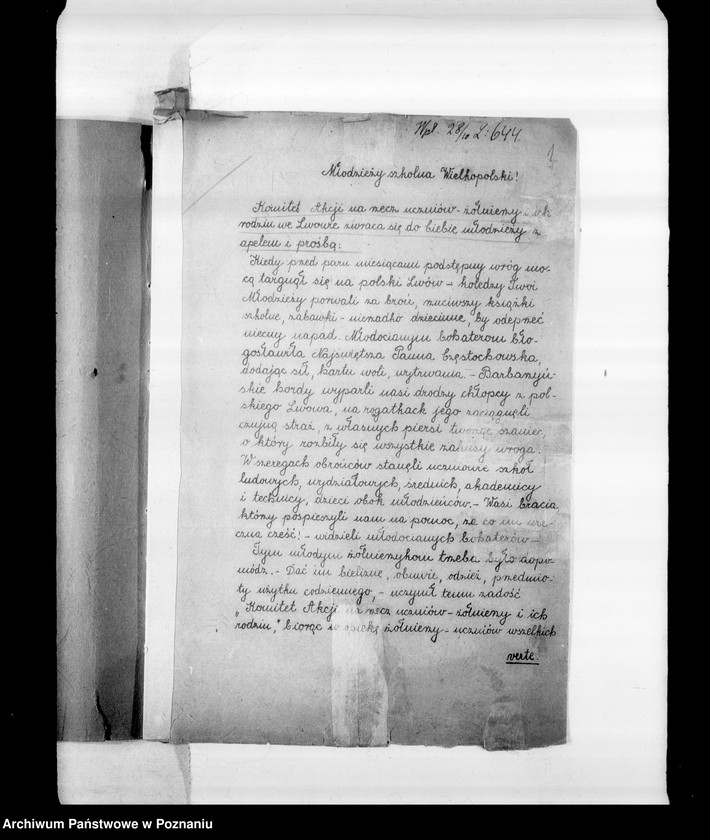 Wpł. 28/10 L: 644.
1
Młodzieży szkolna Wielkopolski!
Komitet Akcji na rzecz uczniów-żołnierzy i ich
rodzin we Lwowie zwraca się do Ciebie młodzieży z
apelem i prośbą:
Kiedy przed paru miesiącami podstępny wróg mo-
cą targnął się na polski Lwów – koledzy Twoi
Młodzieży porwali za broń, rzuciwszy książki
szkolne, zabawki – nierzadko dziecinne, by odeprzeć
niecny napad. Młodocianym bohaterom bło-
gosławiła Najświętsza Panna Częstochowska,
dodając sił, hartu woli, wytrwania. – Barbarzyń-
skie hordy wyparli nasi drodzy chłopcy z pol-
skiego Lwowa, na rogatkach jego zaciągnęli
czujną straż, z własnych piersi tworząc szaniec,
o który rozbiły się wszystkie zakusy wroga.
W szeregach obrońców stanęli uczniowie szkół
ludowych, wydziałowych, średnich, akademicy
i technicy, dzieci obok młodzieńców. – Wasi bracia,
którzy pospieszyli nam na pomoc, za co im wie-
czna cześć! – widzieli młodocianych bohaterów –
Tym młodym żołnierzykom trzeba było dopo-
módz. – Dać im bieliznę, obuwie, odzież, przedmio-
ty użytku codziennego, – uczynił temu zadość
„Komitet Akcji na rzecz uczniów-żołnierzy i ich
rodzin," biorąc w opiekę żołnierzy-uczniów wszelkich
verte.
Archiwum Państwowe w Poznaniu